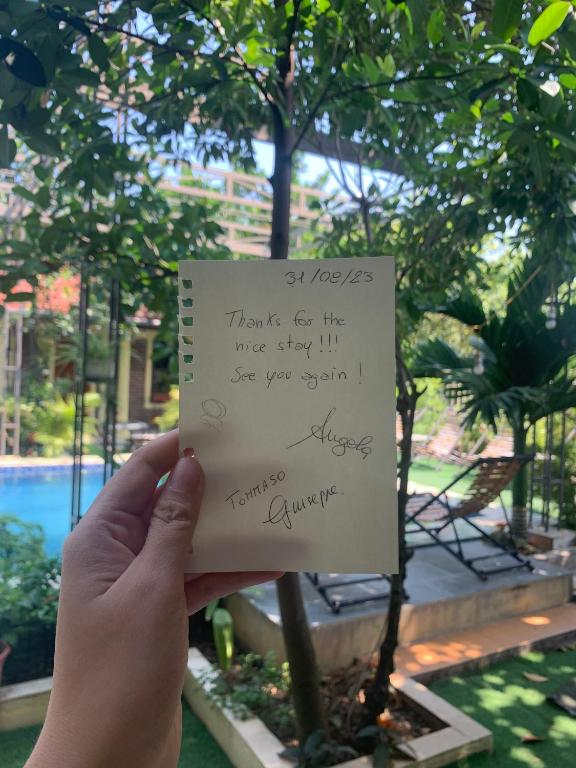 31/08/23
Thanks for the
nice stay!!!
See you again!
Angela
TOMMASO
Giuseppe.